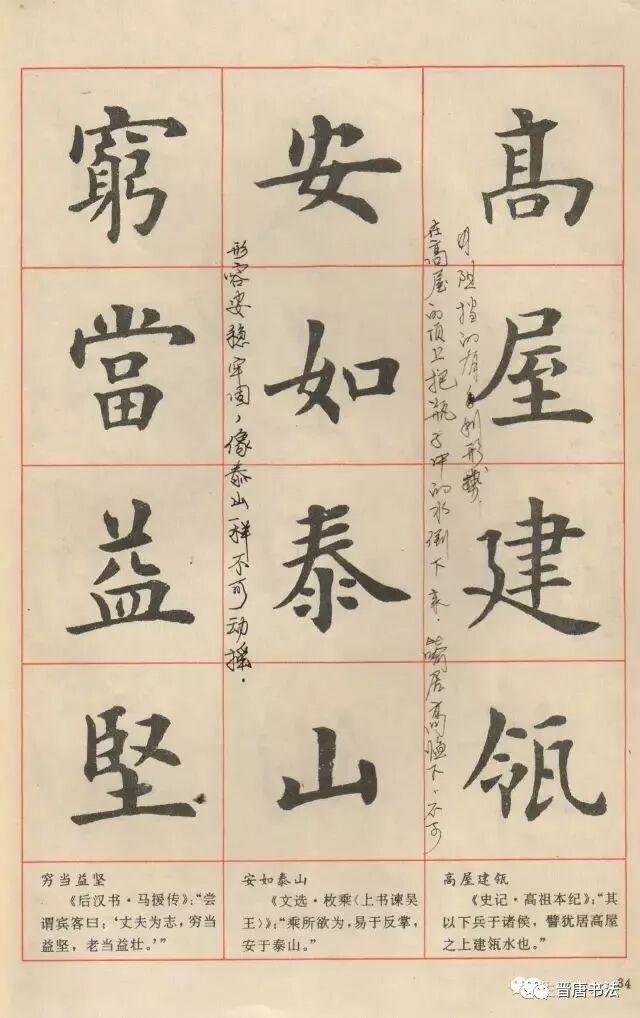 高屋建瓴
在高屋的顶上把瓶子中的水倒下来.喻居高临下,不可
阻挡的有利形势
安如泰山
形容安稳牢固,像泰山一样不可动摇.
窮當益堅
高屋建瓴
《史记·高祖本纪》:“其
以下兵于诸侯,譬犹居高屋
之上建瓴水也。”
安如泰山
《文选·枚乘〈上书谏吴
王〉》:“乘所欲为,易于反掌,
安于泰山。”
穷当益坚
《后汉书·马援传》:“尝
谓宾客曰:‘丈夫为志,穷当
益坚,老当益壮。’”
34
晋唐书法